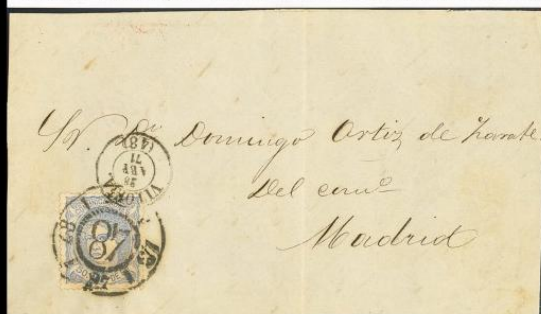 Sr. Dn. Domingo Ortiz de Zarate
del comº
Madrid
VITORIA
28
ABR
71
(48)
48